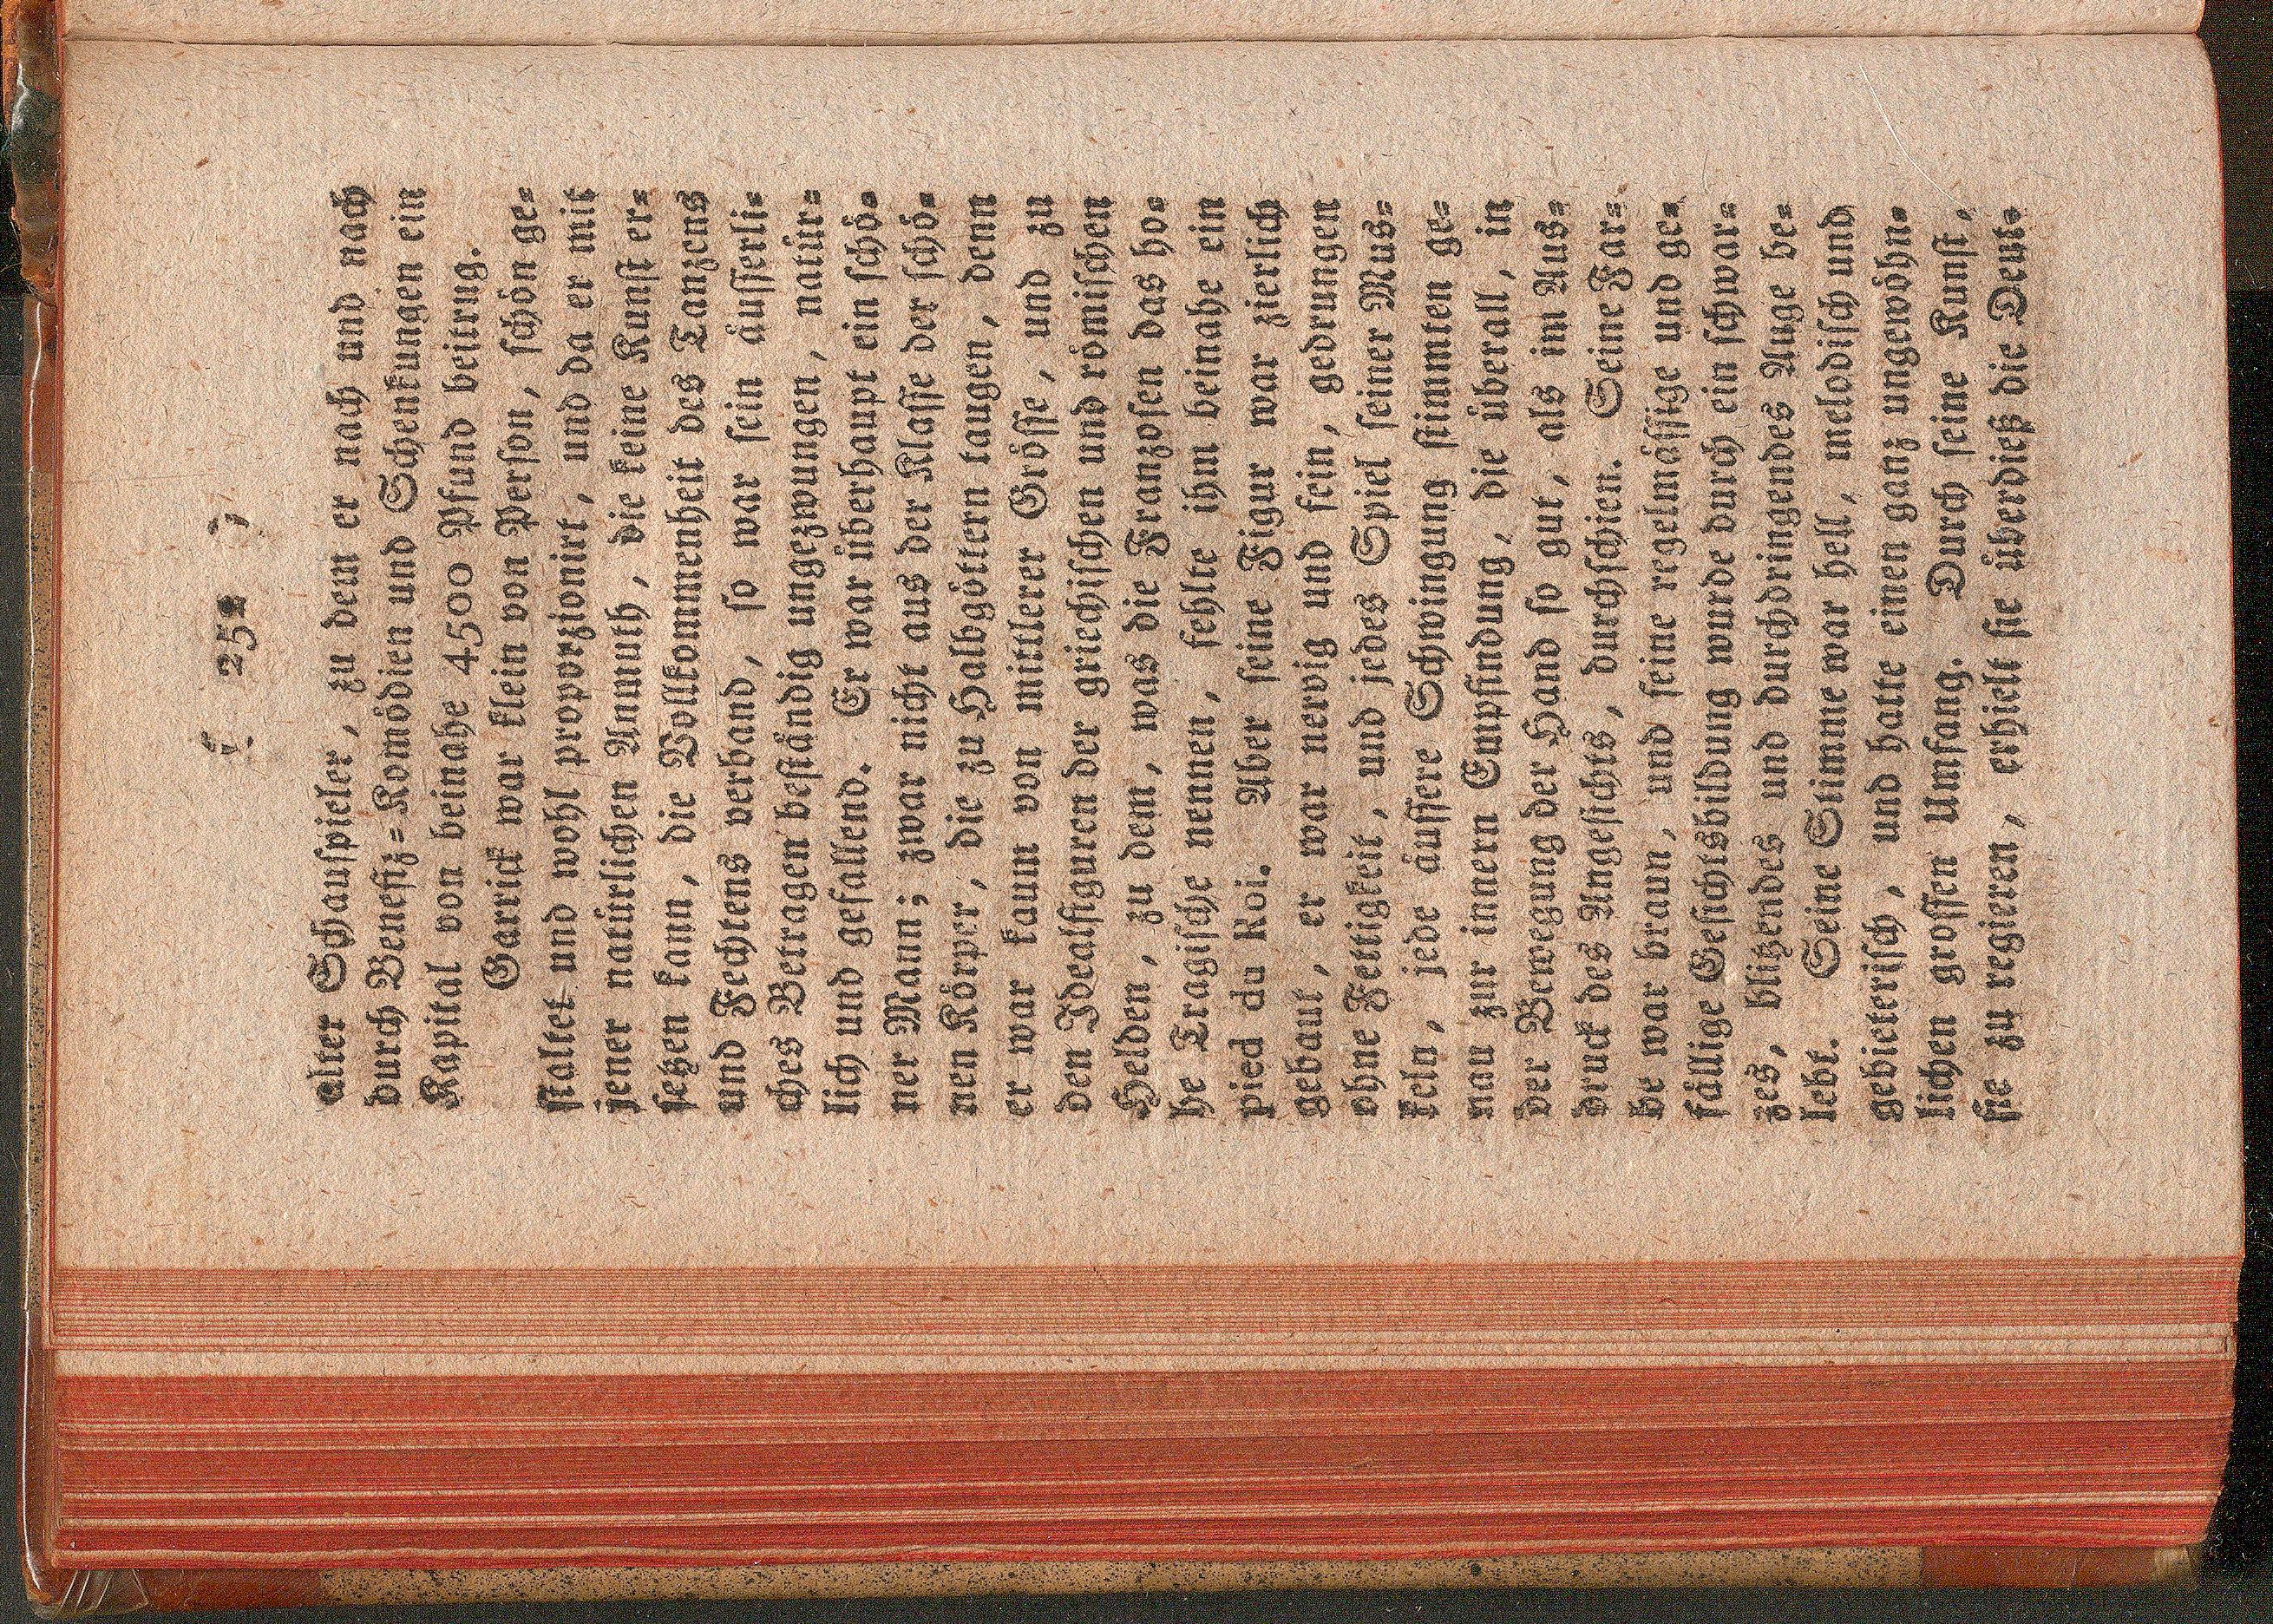 ( 252 )
alter Schauspieler, zu dem er nach und nach
durch Benefiz=Komödien und Schenkungen ein
Kapital von beinahe 4500 Pfund beitrug.
Garrick war klein von Person, schön ge=
staltet und wohl proporzionirt, und da er mit
jener natürlichen Anmuth, die keine Kunst er=
setzen kann, die Vollkommenheit des Tanzens
und Fechtens verband, so war sein äusserli=
ches Betragen beständig ungezwungen, natür=
lich und gefallend. Er war überhaupt ein schö=
ner Mann; zwar nicht aus der Klasse der schö=
nen Körper, die zu Halbgöttern taugen, denn
er war kaum von mittlerer Grösse, und zu
den Idealfiguren der griechischen und römischen
Helden, zu dem, was die Franzosen das ho=
he Tragische nennen, fehlte ihm beinahe ein
pied du Roi. Aber seine Figur war zierlich
gebaut, er war nervig und fein, gedrungen
ohne Fettigkeit, und jedes Spiel seiner Mus=
keln, jede äussere Schwingung stimmten ge=
nau zur innern Empfindung, die überall, in
der Bewegung der Hand so gut, als im Aus=
druck des Angesichts, durchschien. Seine Far=
be war braun, und seine regelmässige und ge=
fällige Gesichtsbildung wurde durch ein schwar=
zes, blitzendes und durchdringendes Auge be=
lebt. Seine Stimme war hell, melodisch und
gebieterisch, und hatte einen ganz ungewöhn=
lichen grossen Umfang. Durch seine Kunst,
sie zu regieren, erhielt sie überdieß die Deut=